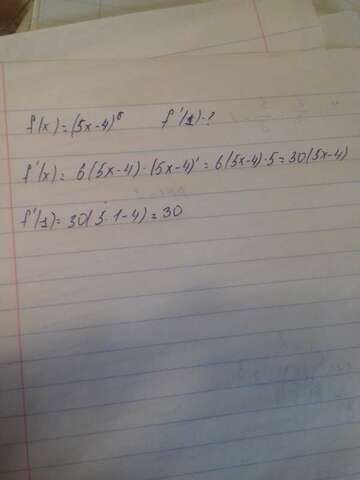 f(x)=(5x-4)⁶ f'(1)-?
f'(x)= 6(5x-4)·(5x-4)'=6(5x-4)·5=30(5x-4)
f'(1)=30(5·1-4)=30